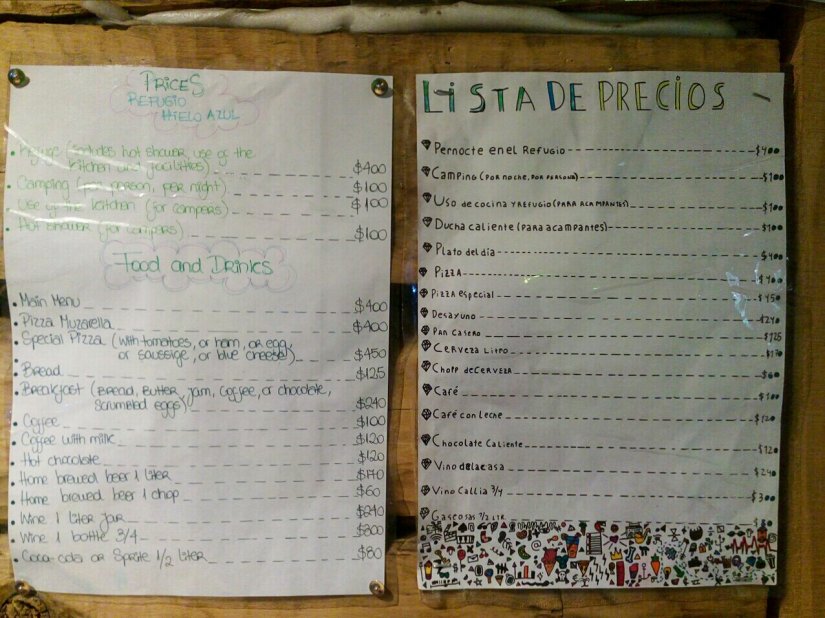 PRICES
REFUGIO
HIELO AZUL
Refuge (includes hot shower, use of the
kitchen and facilities) $400
Camping (per person, per night) $100
Use of the kitchen (for campers) $100
Hot shower (for campers) $100
Food and Drinks
Main Menu $400
Pizza Muzarella $400
Special Pizza (with tomatoes, or ham, or egg,
or saussige, or blue cheese) $450
Bread $125
Breakfast (Bread, Butter, jam, coffee, or chocolate,
scrumbled eggs) $240
Coffee $100
Coffee with milk $120
Hot chocolate $120
Home brewed beer 1 liter $170
Home brewed beer 1 chop $60
Wine 1 liter jar $240
Wine 1 bottle 3/4 $300
Coca-cola or Sprite 1/2 liter $80
LISTA DE PRECIOS
Pernocte en el Refugio $400
Camping (por noche, por persona) $100
Uso de cocina y refugio (para acampantes) $100
Ducha caliente (para acampantes) $100
Plato del día $400
Pizza $400
Pizza especial $450
Desayuno $240
Pan casero $125
Cerveza litro $170
Chopp de cerveza $60
Café $100
Café con leche $120
Chocolate caliente $120
Vino de la casa $240
Vino Callia 3/4 $300
Gaseosas 1/2 ltr